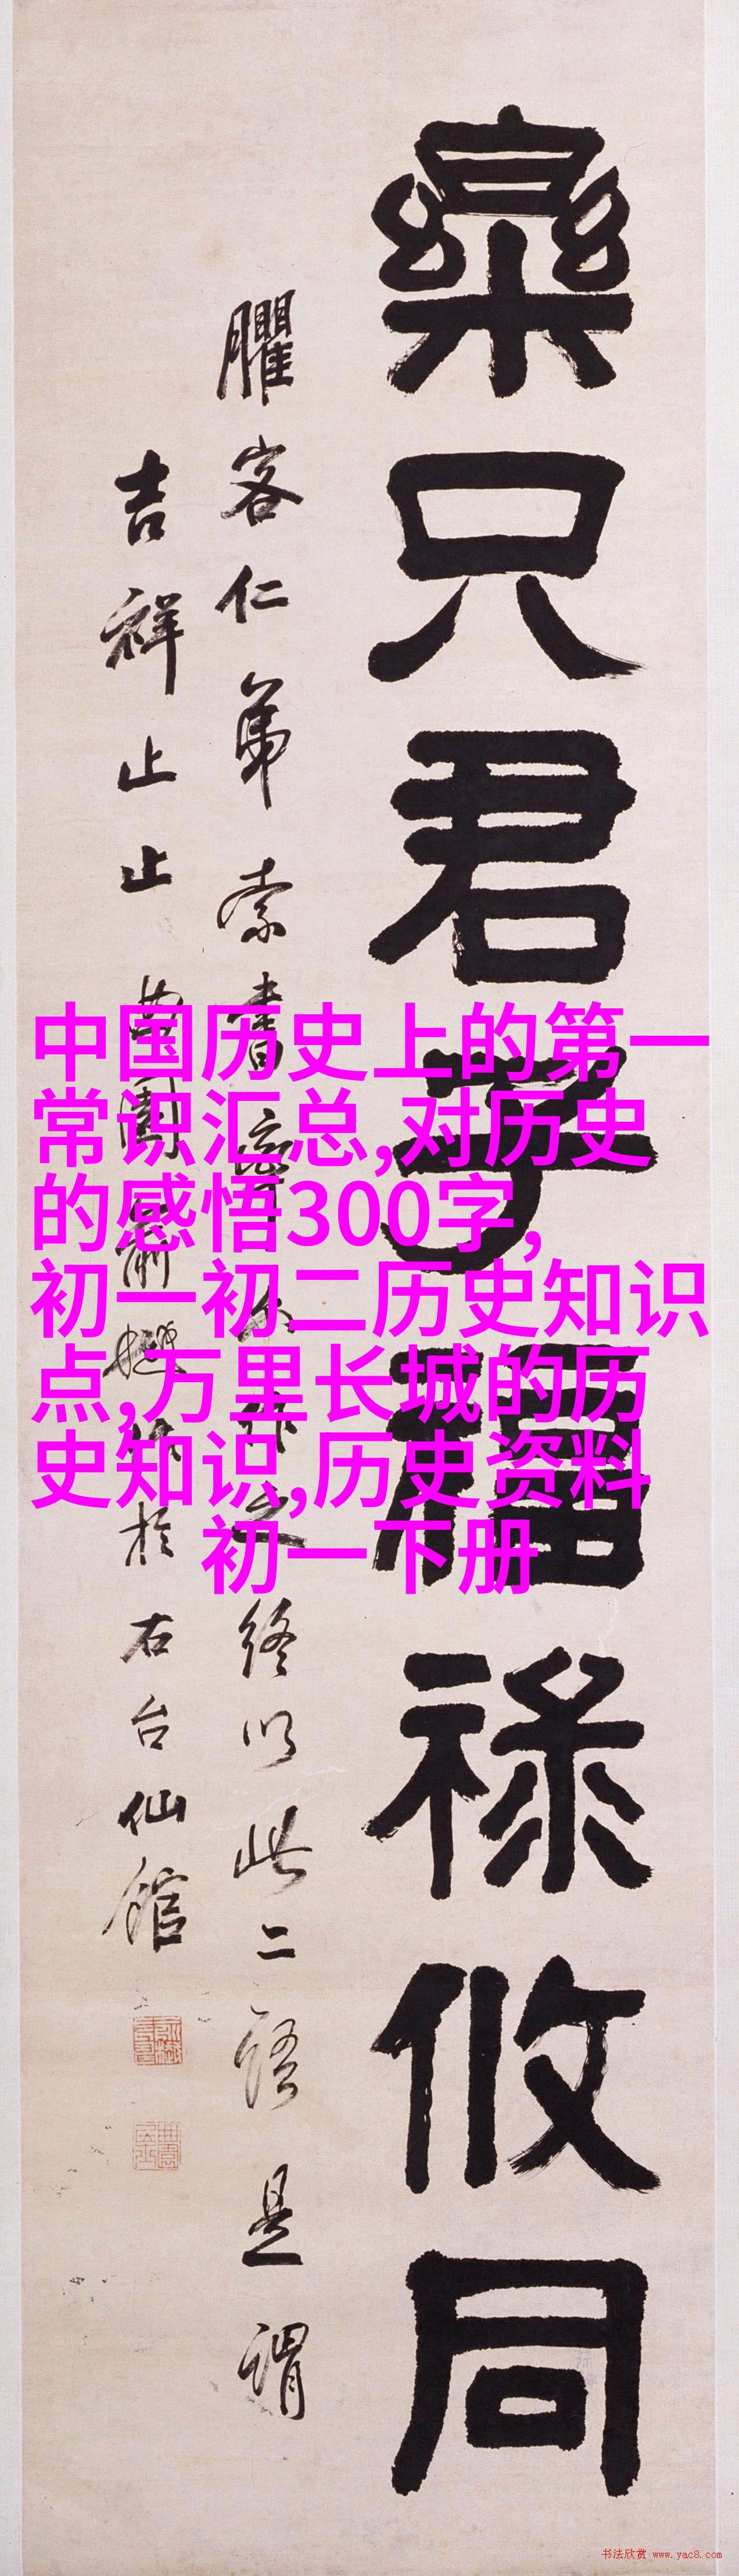 樂只君子福祿攸同
臞客仁弟索書
終以此二語是謂
吉祥止止曲園俞樾
於右台仙館
中国历史上的第一
常识汇总,对历史
的感悟300字,
初一初二历史知识
点,万里长城的历
史知识,历史资料
初一下册
书法欣赏 www.yac8.com